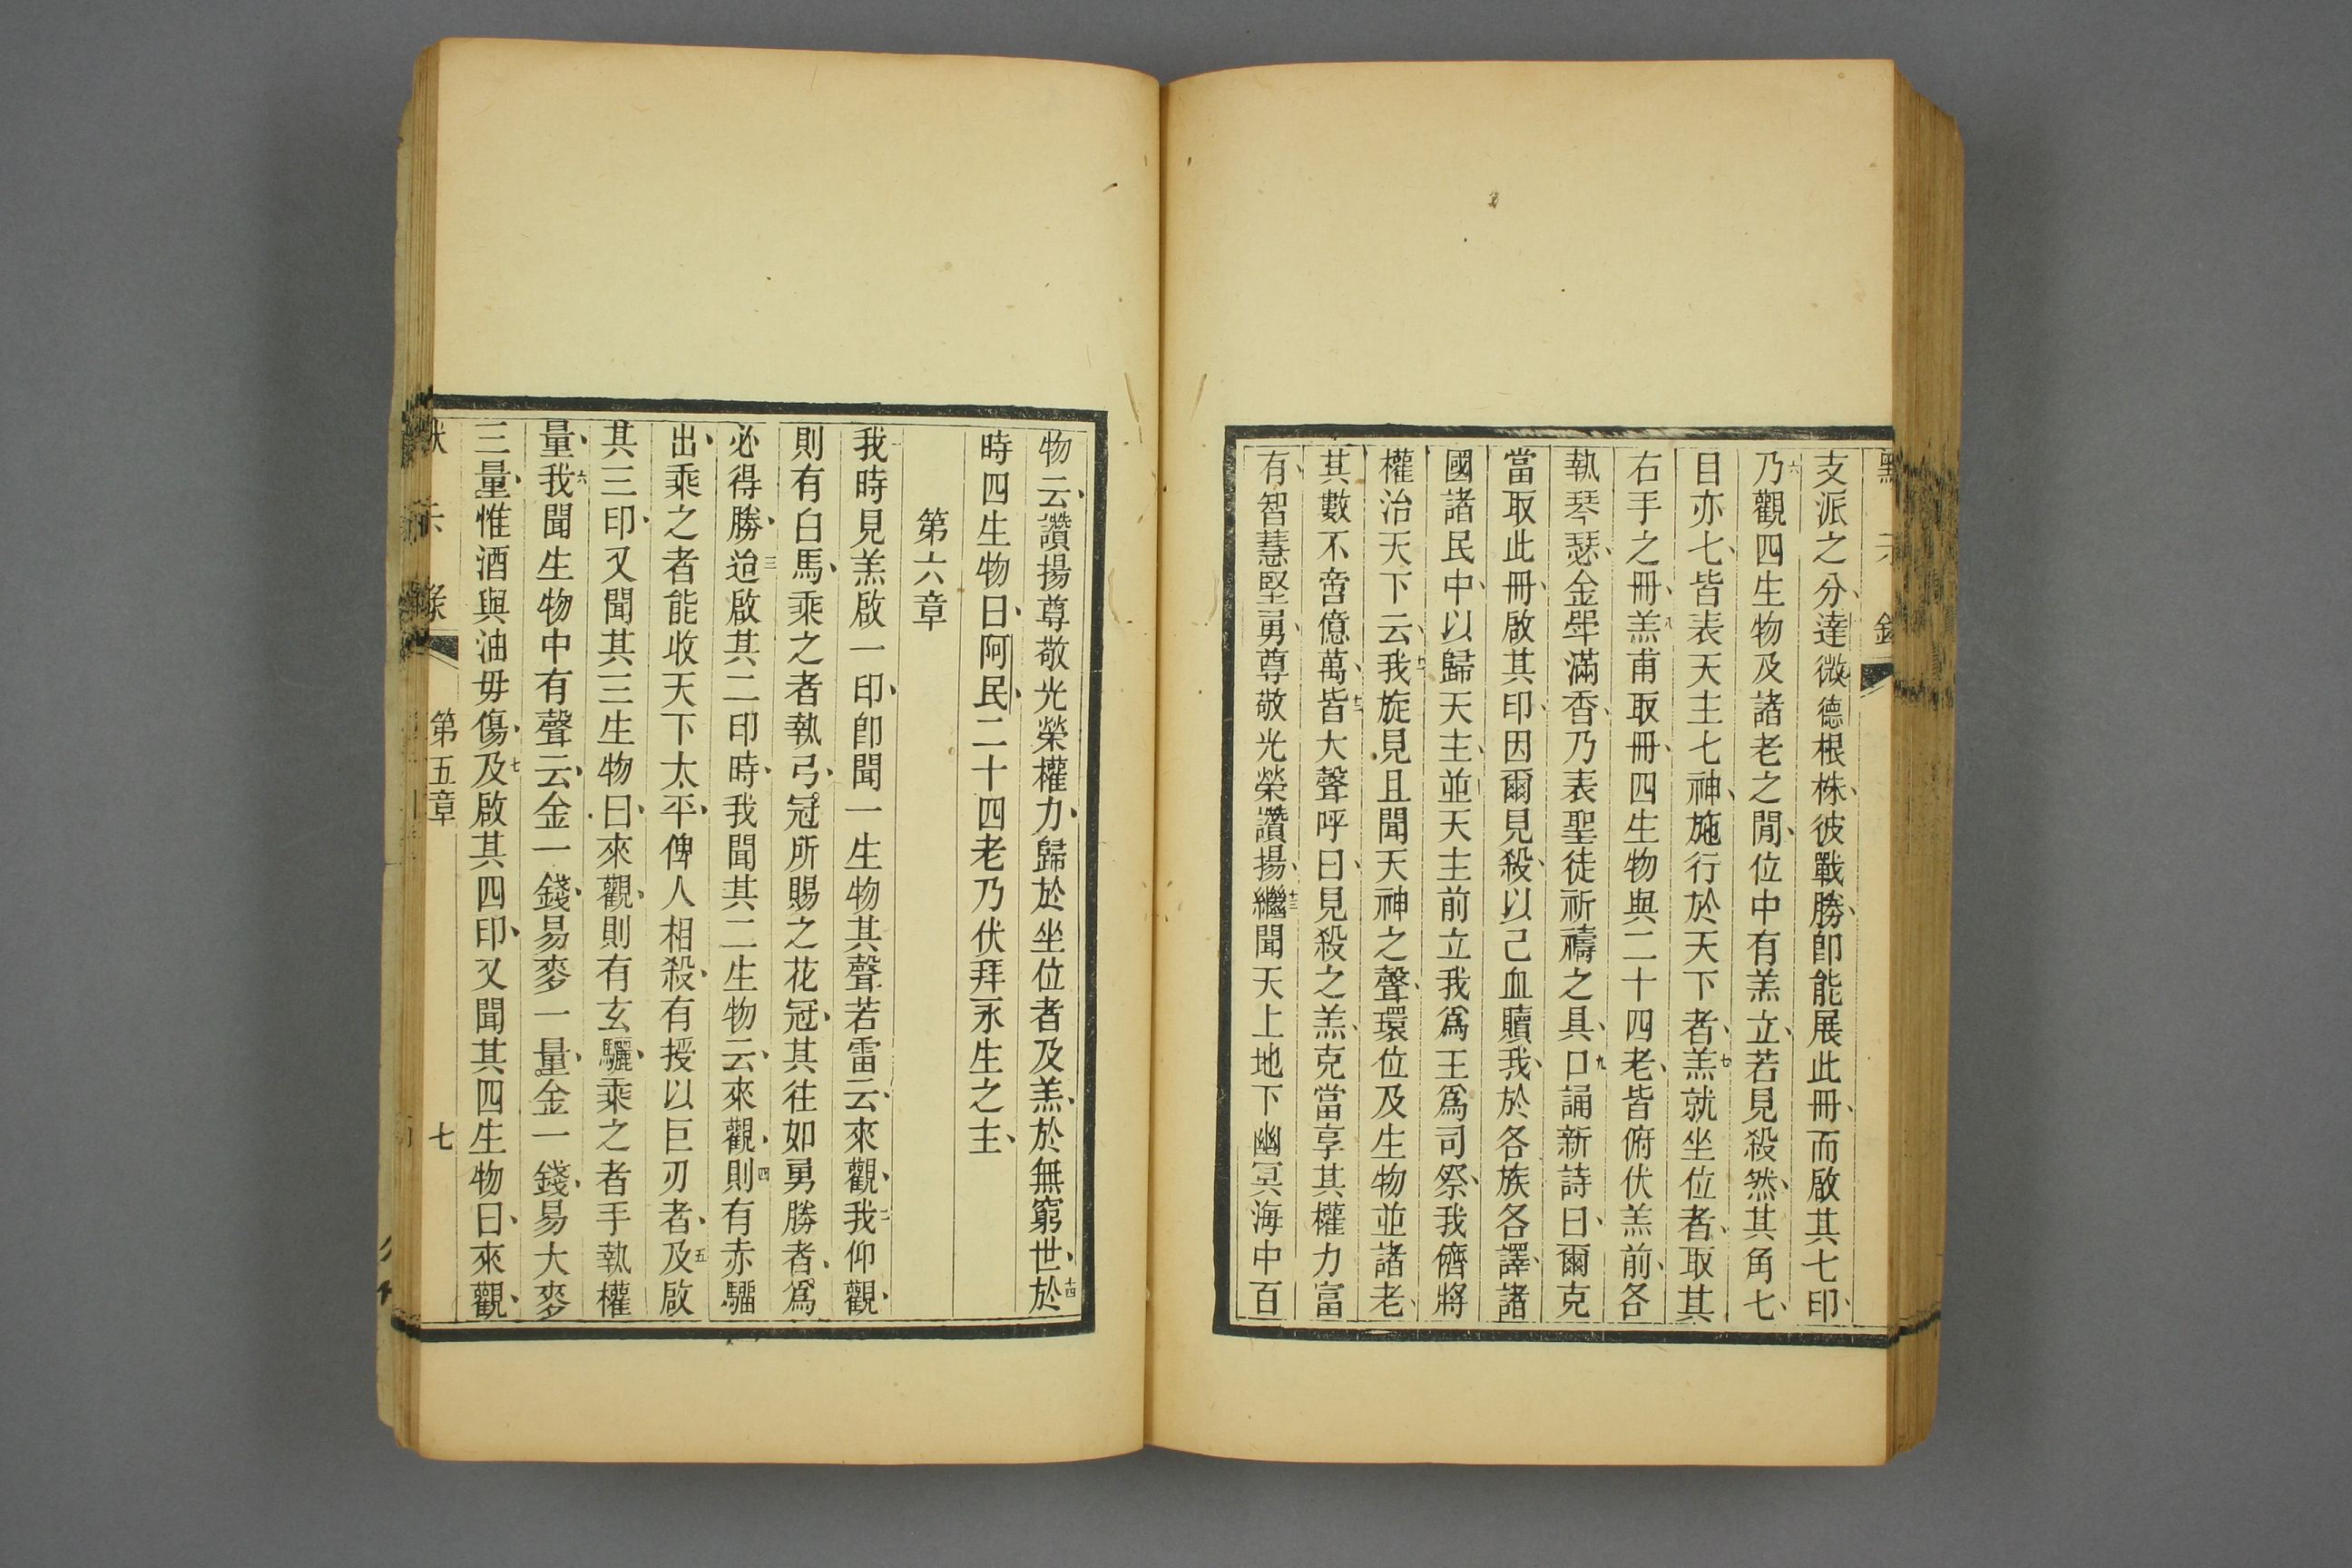 支派之分、達微德根株、彼戰勝、卽能展此冊、而啟其七印、
乃觀四生物及諸老之閒、位中有羔立、若見殺然、其角七、
目亦七、皆表天主七神、施行於天下者、羔就坐位者、取其
右手之冊、羔甫取冊、四生物與二十四老、皆俯伏羔前、各
執琴瑟、金斝滿香、乃表聖徒祈禱之具、口誦新詩曰、爾克
當取此冊、啟其印、因爾見殺、以己血贖我、於各族各譯、諸
國諸民中、以歸天主、並天主前立我為王為司祭、我儕將
權治天下云、我旋見且聞天神之聲、環位及生物並諸老、
其數不啻億萬、皆大聲呼曰、見殺之羔、克當享其權力富
有、智慧堅勇、尊敬光榮讚揚、繼聞天上地下幽冥海中百
物云、讚揚尊敬光榮權力、歸於坐位者及羔、於無窮世、於
時四生物曰、阿民、二十四老乃伏拜永生之主、
第六章
我時見羔啟一印、卽聞一生物其聲若雷云、來觀、我仰觀、
則有白馬、乘之者執弓、冠所賜之花冠、其往如勇勝者、為
必得勝、迨啟其二印時、我聞其二生物云、來觀、則有赤騮
出、乘之者能收天下太平、俾人相殺、有授以巨刃者、及啟
其三印、又聞其三生物曰、來觀、則有玄驪、乘之者手執權
量、我聞生物中有聲云、金一錢、易麥一量、金一錢、易大麥
三量、惟酒與油毋傷、及啟其四印、又聞其四生物曰、來觀、
第五章
七